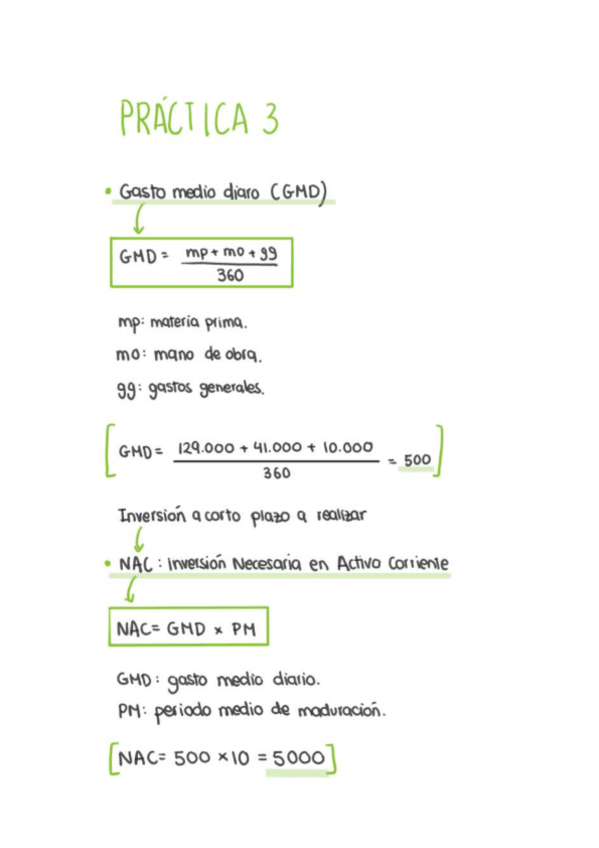 PRÁCTICA 3
• Gasto medio diaro (GMD)
GMD = mp + mo + gg
360
mp: materia prima.
mo: mano de obra.
gg: gastos generales.
[GMD = 129.000 + 41.000 + 10.000 = 500]
360
Inversión a corto plazo a realizar
• NAC: Inversión Necesaria en Activo Corriente
NAC = GMD × PM
GMD: gasto medio diario.
PM: periodo medio de maduración.
[NAC = 500 × 10 = 5000]